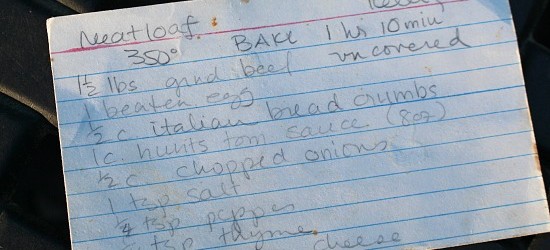 Meatloaf
350° BAKE 1 hr 10 min
uncovered
1½ lbs grnd beef
1 beaten egg
½ c italian bread crumbs
1 c. hunts tom sauce (8oz)
½ c chopped onions
1 tsp salt
¼ tsp pepper
tsp thyme
cheese